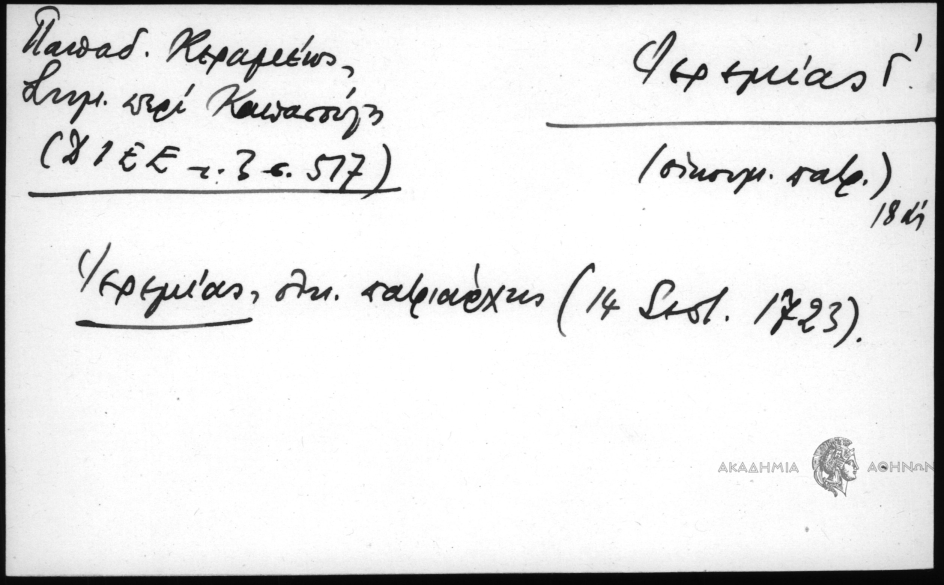 Παπαδ. Κεραμέως,
Σημ. περί Καπασούλη
(ΔΙΕΕ τ. 3 σ. 517)
Ἱερεμίας Γ΄.
(οἰκουμ. πατρ.)
18 αἰ
Ἱερεμίας, οἰκ. πατριάρχης (14 Σεπτ. 1723).
ΑΚΑΔΗΜΙΑ ΑΘΗΝΩΝ